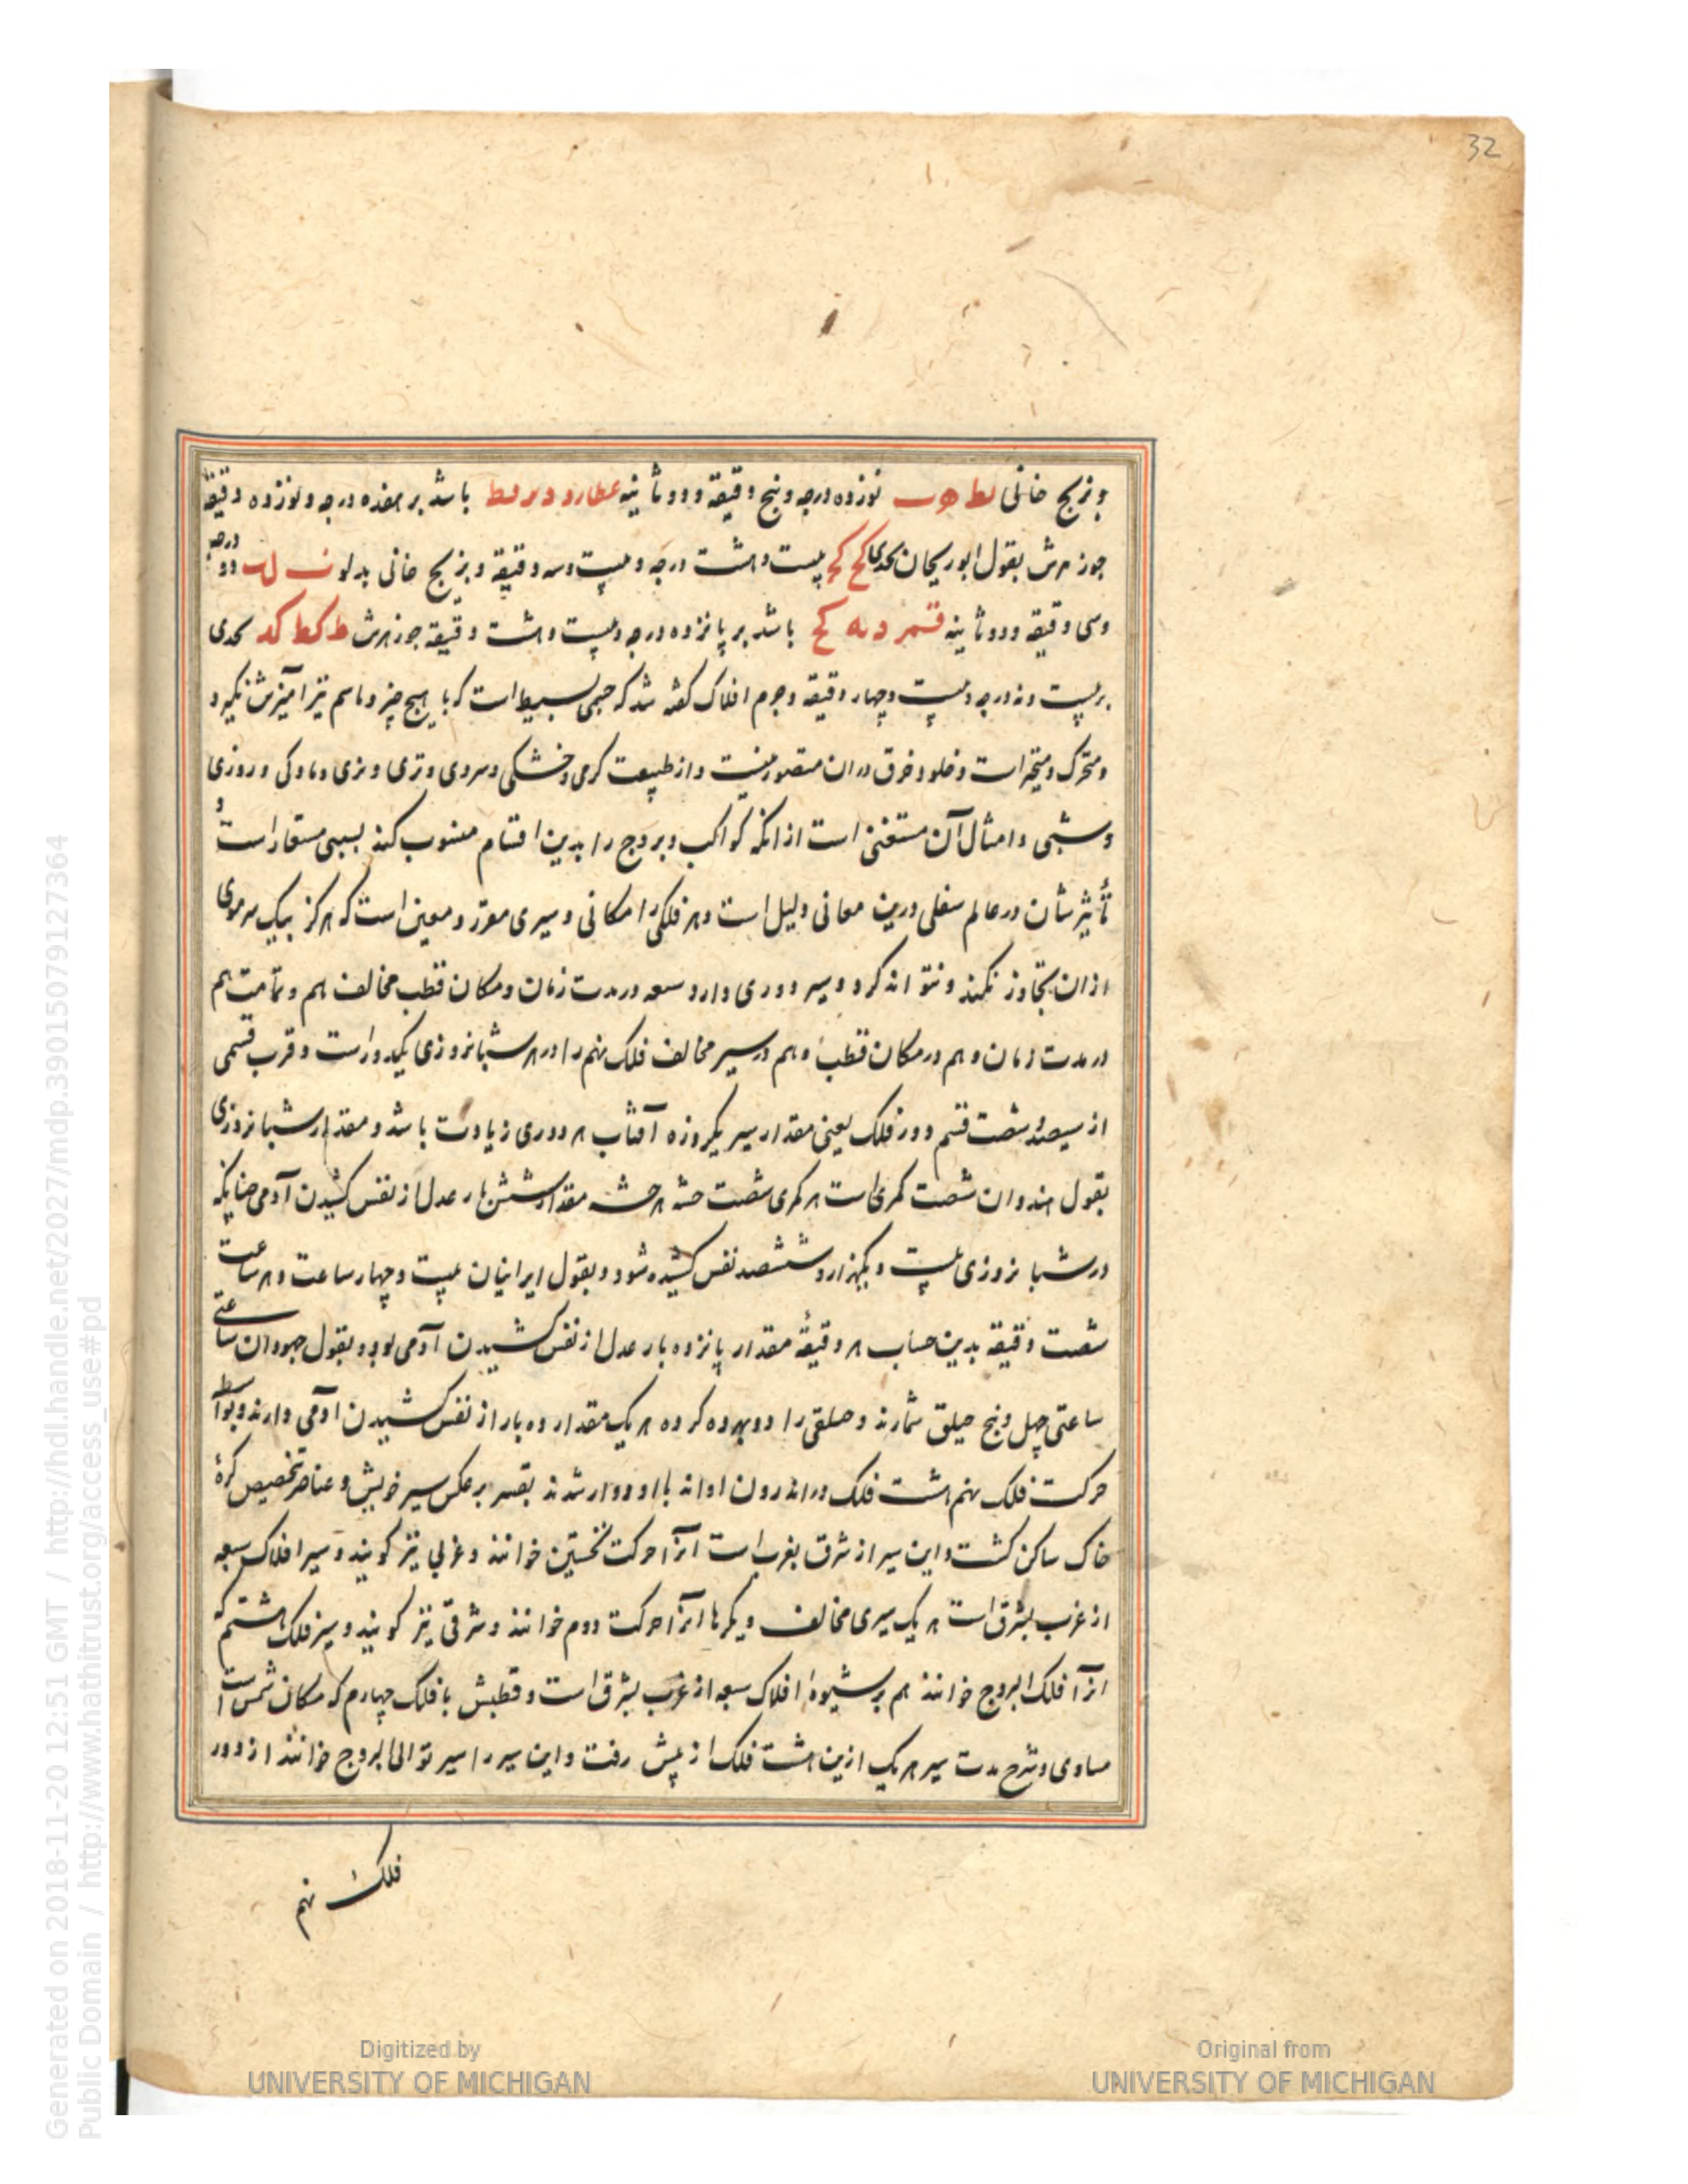 32
و بزیج خانی لط ه ب نوزده درجه و پنج دقیقه و دو ثانیه عطارد د یر لط باشد بر هفده درجه و نوزده دقیقه
جوزهرش بقول ابوریحان بجدی کح کح بیست و هشت درجه و بیست و سه دقیقه و بزیج خانی بدلو ب ل ب دو درجه
و سی دقیقه و دو ثانیه قمر د یه کح باشد بر پانزده درجه و بیست و هشت دقیقه جوزهرش ط کط کد بجدی
بر بیست و نه درجه و بیست و چهار دقیقه و جرم افلاک گفته شد که جسمی بسیط است که با هیچ چیز و باسم نیز آمیزش نگیرد
و متحرک و متحیز است و خلو و خرق دران متصور نیست و از طبیعت گرمی و خشکی و سردی و تری و نری و مادگی و روزی
و شبی و امثال آن مستغنی است از انکه کواکب و بروج را بدین اقسام منسوب کنند بسببی مستعار است و
تأثیرشان در عالم سفلی درین معانی دلیل است و هر فلکی را مکانی و سیری مقرر و معین است که هرگز بیک سر موی
ازان تجاوز نکند و نتواند کرد و سیر دوری دارد سعه در مدت زمان و مکان قطب مخالف هم و تمامت هم
در مدت زمان و هم در مکان قطب و هم در سیر مخالف فلک نهم را در هر شبانروزی یکدور است و قرب قسمی
از سیصد و شصت قسم دور فلک یعنی مقدار سیر یکروزه آفتاب هر دوری زیادت باشد و مقدار شبانروزی
بقول هندوان شصت کهری است هر کهری شصت حشه هر حشه مقدار شش بار عدل از نفس کشیدن آدمی چنانکه
در شبانروزی بیست و یکهزار و ششصد نفس کشیده شود و بقول ایرانیان بیست و چهار ساعت و هر ساعت
شصت دقیقه بدین حساب هر دقیقهٔ مقدار پانزده بار عدل از نفس کشیدن آدمی بود و بقول جهودان ساعتی
ساعتی چهل و پنج حیلق شمارند و حلقی را دو بهره کرده هر یک مقدار ده بار از نفس کشیدن آدمی دارند و بواسطه
حرکت فلک نهم هشت فلک در اندرون او اند با او دوار شدند بقسر بر عکس سیر خویش و عناصر تخصیص کرهٔ
خاک ساکن گشت و این سیر از شرق بغرب است آنرا حرکت نخستین خوانند و غربی نیز گویند و سیر افلاک سبعه
از غرب بشرق است هر یک سیری مخالف دیگرها آنرا حرکت دوم خوانند و شرقی نیز گویند و سیر فلک هشتم که
آنرا فلک البروج خوانند هم بر شیوهٔ افلاک سبعه از غرب بشرق است و قطبش با فلک چهارم که مکان شمس است
مساوی و شرح مدت سیر هر یک ازین هشت فلک از پیش رفت و این سیر را سیر توالی البروج خوانند از دور
فلک نهم
Digitized by
UNIVERSITY OF MICHIGAN
Original from
UNIVERSITY OF MICHIGAN
Generated on 2018-11-20 12:51 GMT / http://hdl.handle.net/2027/mdp.39015079127364
Public Domain / http://www.hathitrust.org/access_use#pd